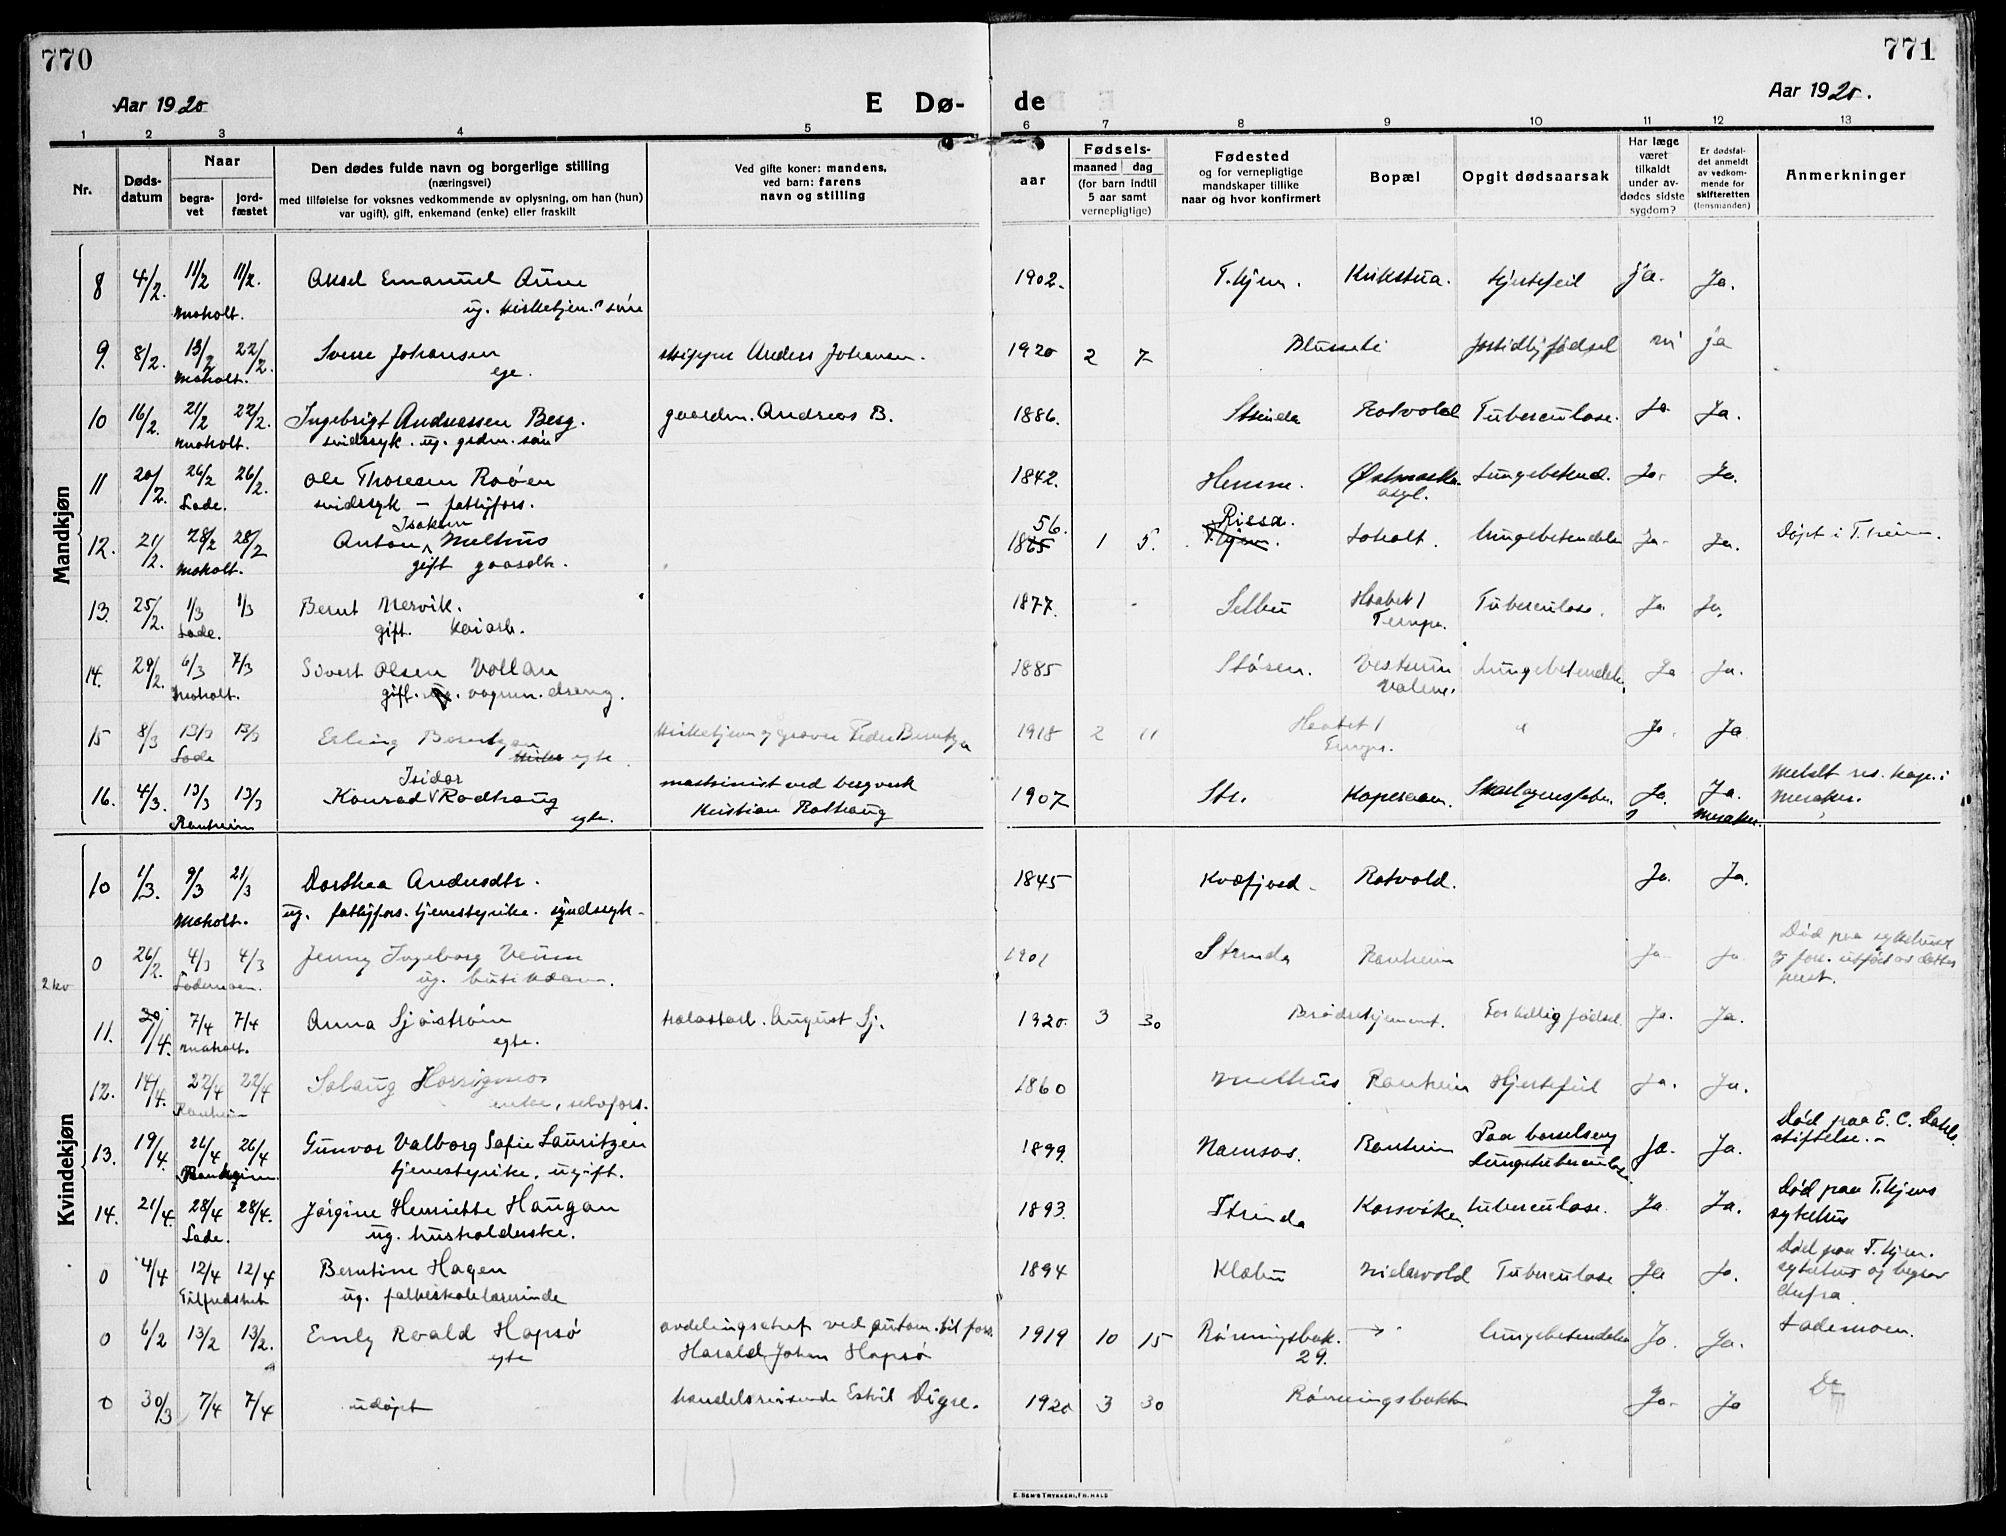 770
771
Aar 1920
E Dø-
de
Aar 1920.
1 2 3 4 5 6 7 8 9 10 11 12 13
Nr.
Døds-
datum
Naar
begra-
vet
jord-
fæstet
Den dødes fulde navn og borgerlige stilling
(næringsvei)
med tilføielse for voksnes vedkommende av oplysning, om han (hun)
var ugift), gift, enkemand (enke) eller fraskilt
Ved gifte koner: mandens,
ved barn: farens
navn og stilling
aar
Fødsels-
maaned dag
(for barn indtil
5 aar samt
vernepligtige)
Fødested
og for vernepligtige
mandskaper tillike
naar og hvor konfirmert
Bopæl
Opgit dødsaarsak
Har læge
været
tilkaldt
under av-
dødes sidste
sygdom?
Er dødsfal-
det anmeldt
av vedkom-
mende for
skifteretten
(lensmanden)
Anmerkninger
Mandkjøn
8 4/2. 11/2 11/2. Aksel Emanuel Aune 1902. T.hjem. Hjertefeil ja. Ja.
Moholt. ug. kirketjen. søn
9. 8/2. 13/2 22/2. Sverre Johansen skipper Anders Johansen. 1920 2 7 Blussuvold ja
Moholt. egte.
10 16/2. 21/2 22/2. Ingebrigt Andreassen Berg. gaardm. Andreas B. 1886. Strinda Rotvold Tuberculose. Ja Ja.
Moholt. sindssyk. ug. grdm. søn
11 20/2. 26/2 26/2. Ole Thoresen Roøen 1842. Hemne. Østmarka Lungebetend. Ja. Ja.
Lade. sindssyk - fattigfors. asyl.
Isaksen 56. Rissa.
12. 21/2. 28/2 28/2 Anton Melhus 1865 1 5. T.hjem. Loholt. Lungebetendelse Ja. Ja. Døpt i T.heim.
Moholt. gift gaardbr.
13. 25/2. 1/3 1/3 Bernt Nervik. 1877. Selbu Haabet / Tuberculose. Ja Ja.
Lade. gift. Tempe.
14. 29/2. 6/3 7/3 Sivert Olsen Vollan 1885 Støren. Lungebetendelse. Ja Ja.
Moholt. gift. vognm. dreng.
15 8/3 13/3 13/3 Erling Berntzen kirketjener og graver Peder Berntzen 1918 2 11 Haabet / " Ja. Ja
Lade egte Tempe.
Isidor maskinist ved bergverk Meldt res. kap. i
16. 4/3. 13/3 13/3 Konrad Rodhaug 1907 Str. Skarlagensfeber. Ja. Ja. Meraker.
Ranheim egte. Kristian Rodhaug Meraker.
Kvindekjøn
10 1/3. 9/3 21/3 Dorthea Andersdtr. 1845 Kvæfjord. Rotvold. Ja. Ja.
Moholt. ug. fattigfors. tjenestepike. sindssyk.
0 26/2. 4/3 4/3 Jenny Ingeborg Veum 1901 Strinda Ranheim Ja Ja Død paa sykehuset
2 kv Lademoen. ug. butikdame. og for. utført av dettes
prest.
11. 7/4. 7/4 7/4 Anna Sjøstrøm August Sj. 1920. 3 30 For tidlig fødsel. Ja. Ja.
Moholt. egte.
12. 14/4. 22/4 22/4 Solaug 1860 Melhus Ranheim Hjertefeil Ja. Ja.
Ranheim enke, selvfors.
13. 19/4. 26/4 26/4 Gunvor Valborg Sofie Lauritzen 1899. Namsos. Ranheim Paa barselseng Ja. Ja. Død paa E. C. Dahls
Ranheim. tjenestepike, ugift. Lungetuberculose stiftelse.-
14. 21/4. 28/4 28/4. Jørgine Henriette Haugan 1893. Strinda Korsviken tuberculose. Ja. Ja. Død paa T.hjems
Lade. ug. husholderske. sykehus
0 4/4 12/4 12/4 Berntine Hagen 1894 Klæbu Nidarvold Tuberculose Ja Ja. Død paa T.hjem.
Tilfredshet ug. folkeskolelærerinde sykehus og begrav
derfra.
0 6/2 13/2 13/2. Emly Roald Hopsø avdelingschef ved autom. tlf fors. 1919 10 15 Rønningsbak. " Lungebetendelse Ja. Ja. Lademoen.
egte Harald Johan Hopsø 29.
0 30/3 7/4 7/4 udøpt handelsreisende Eskil Digre. 1920 3 30 Rønningsbakken Ja. Ja Do
E. SEM'S TRYKKERI, FR.HALD